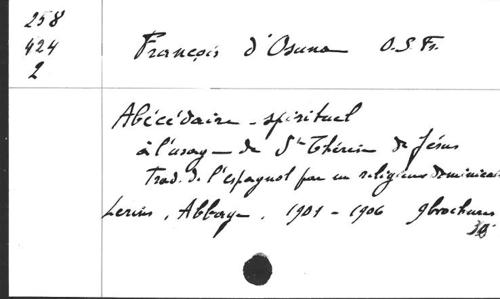 258
424
2
François d'Osuna O.S.Fr.
Abécédaire - spirituel
à l'usage de Ste Thérèse de Jésus
Trad. d. l'espagnol par un religieux dominicain
Lerins, Abbaye, 1901 - 1906 9 brochures